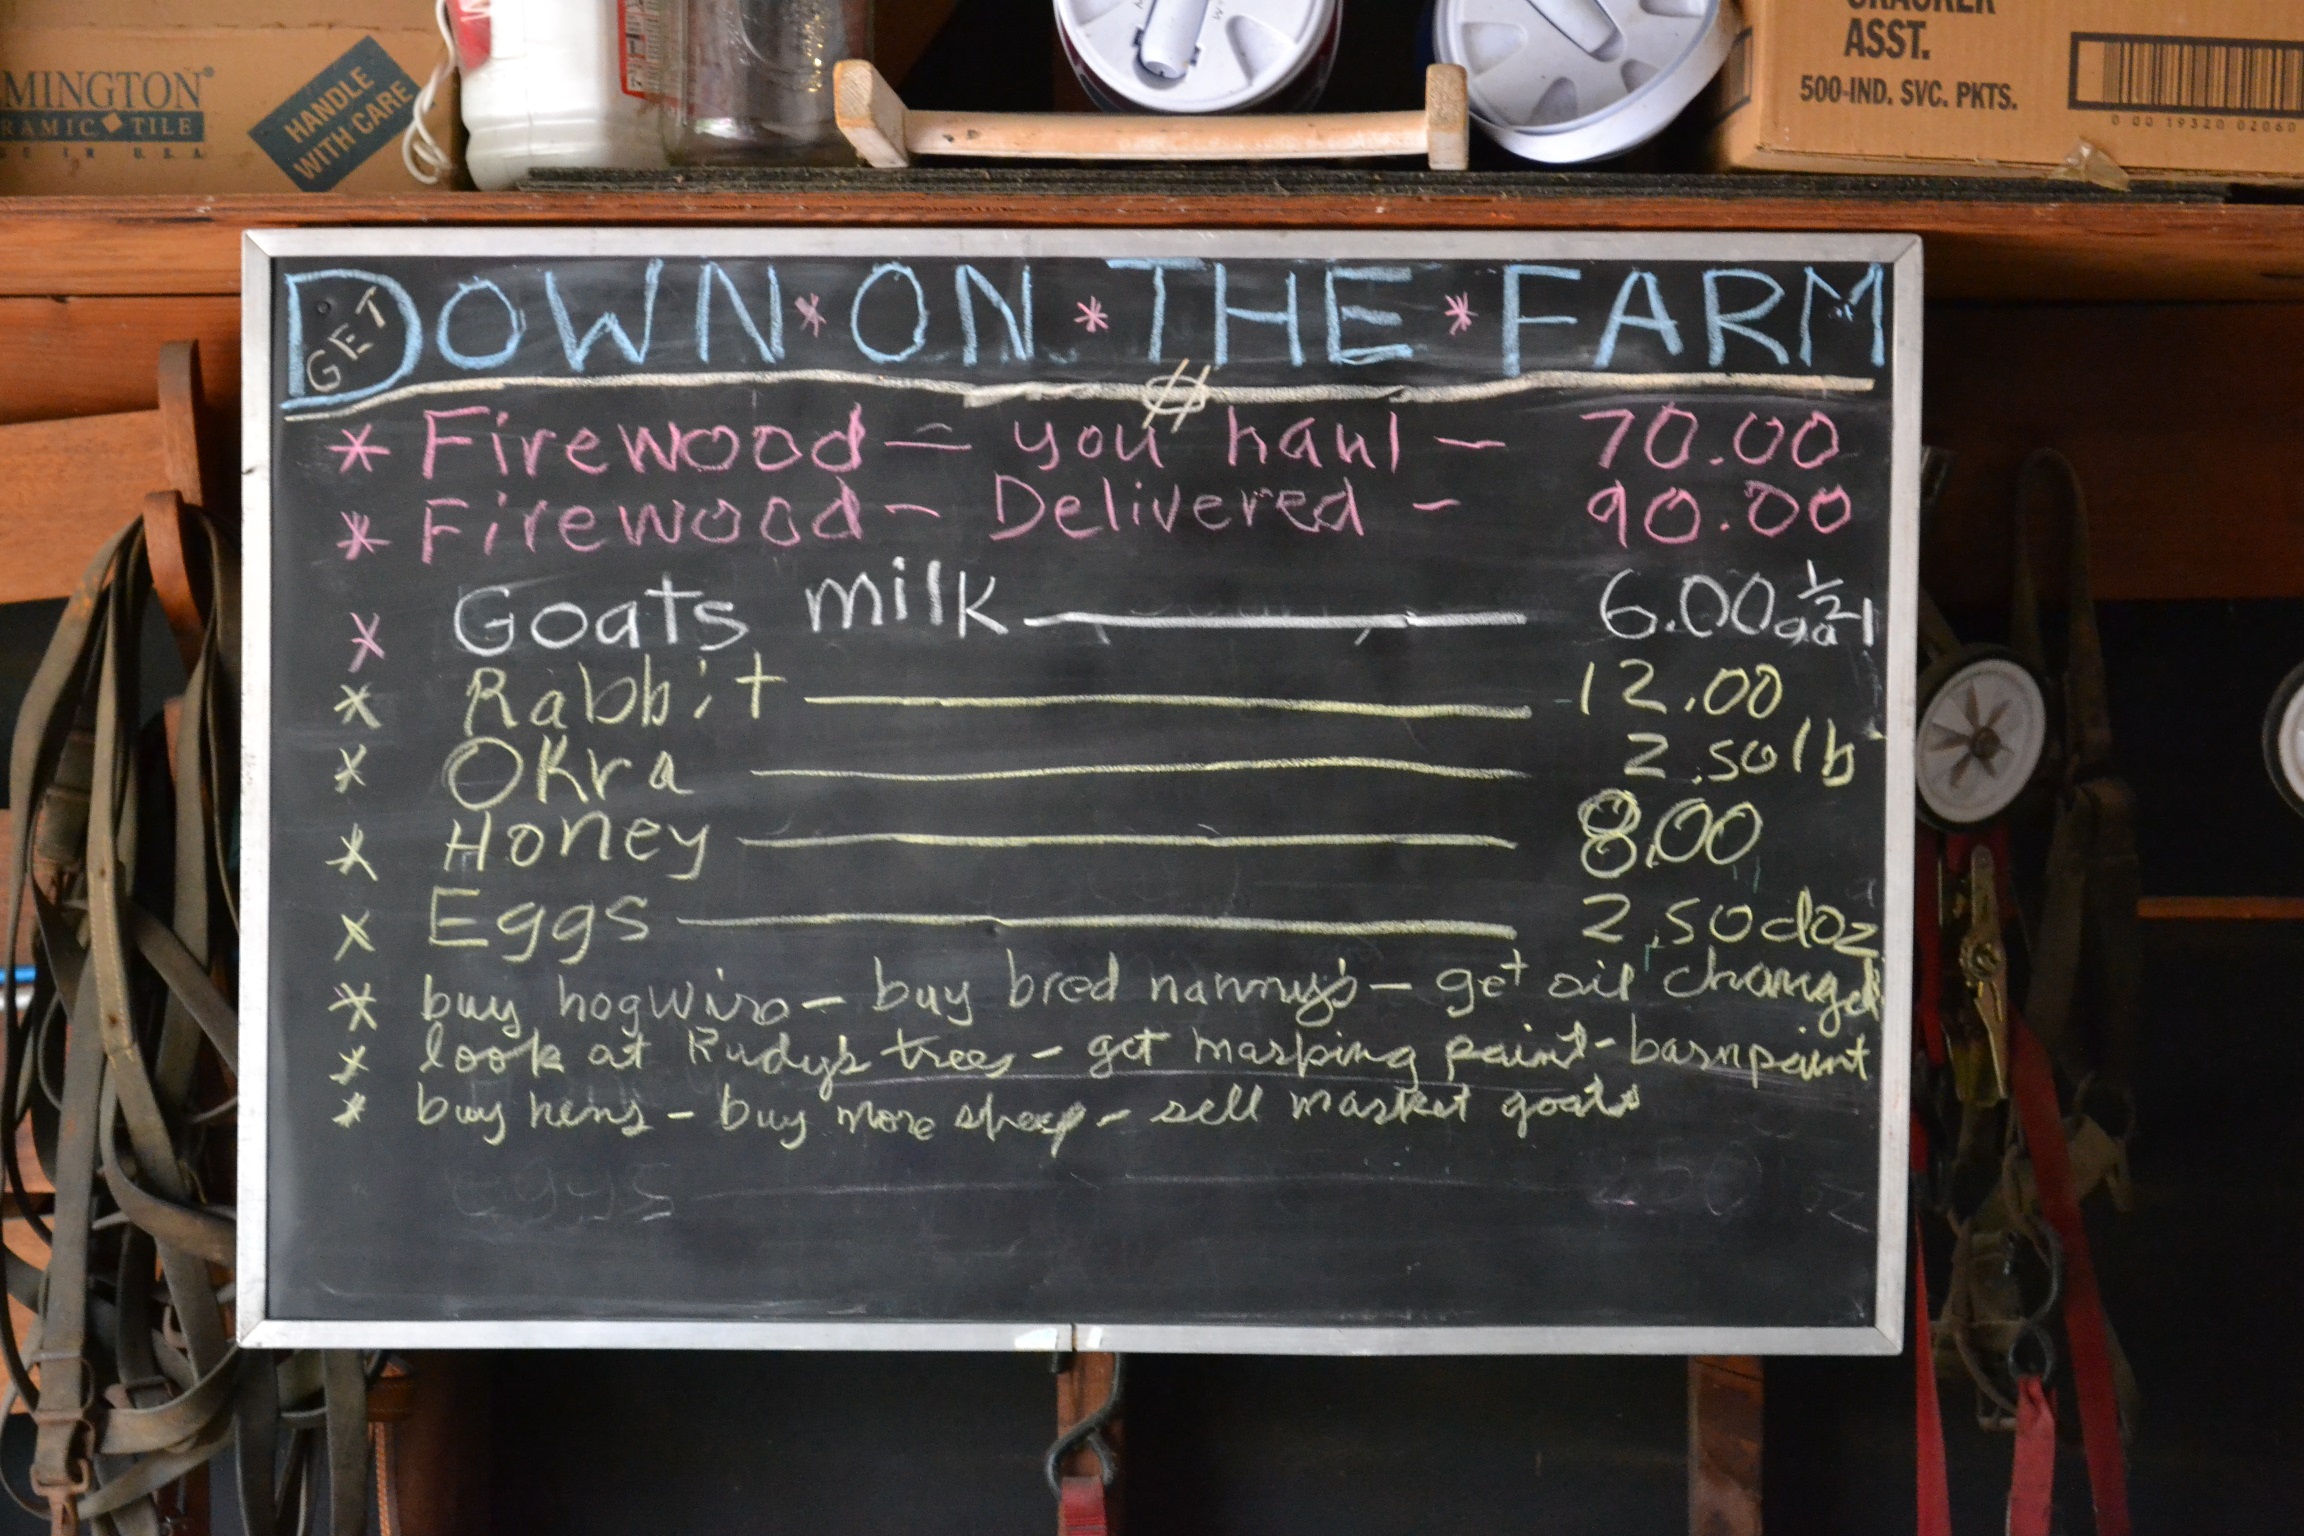 MINGTON®
RAMIC TILE
E IN U.S.A.
HANDLE
WITH CARE
CRACKER
ASST.
500-IND. SVC. PKTS.
0 00 19320 02060
GET
DOWN * ON * THE * FARM
* Firewood - you haul - 70.00
* Firewood - Delivered - 90.00
* Goats milk — 6.00 1/2 gal
* Rabbit — 12.00
* Okra — 2.50 lb
* Honey — 8.00
* Eggs — 2.50 doz
* buy hogwire - buy bred nanny's - get oil changed
* look at Rudy's trees - get marking paint - barnpaint
* buy hens - buy more sheep - sell market goats
eggs